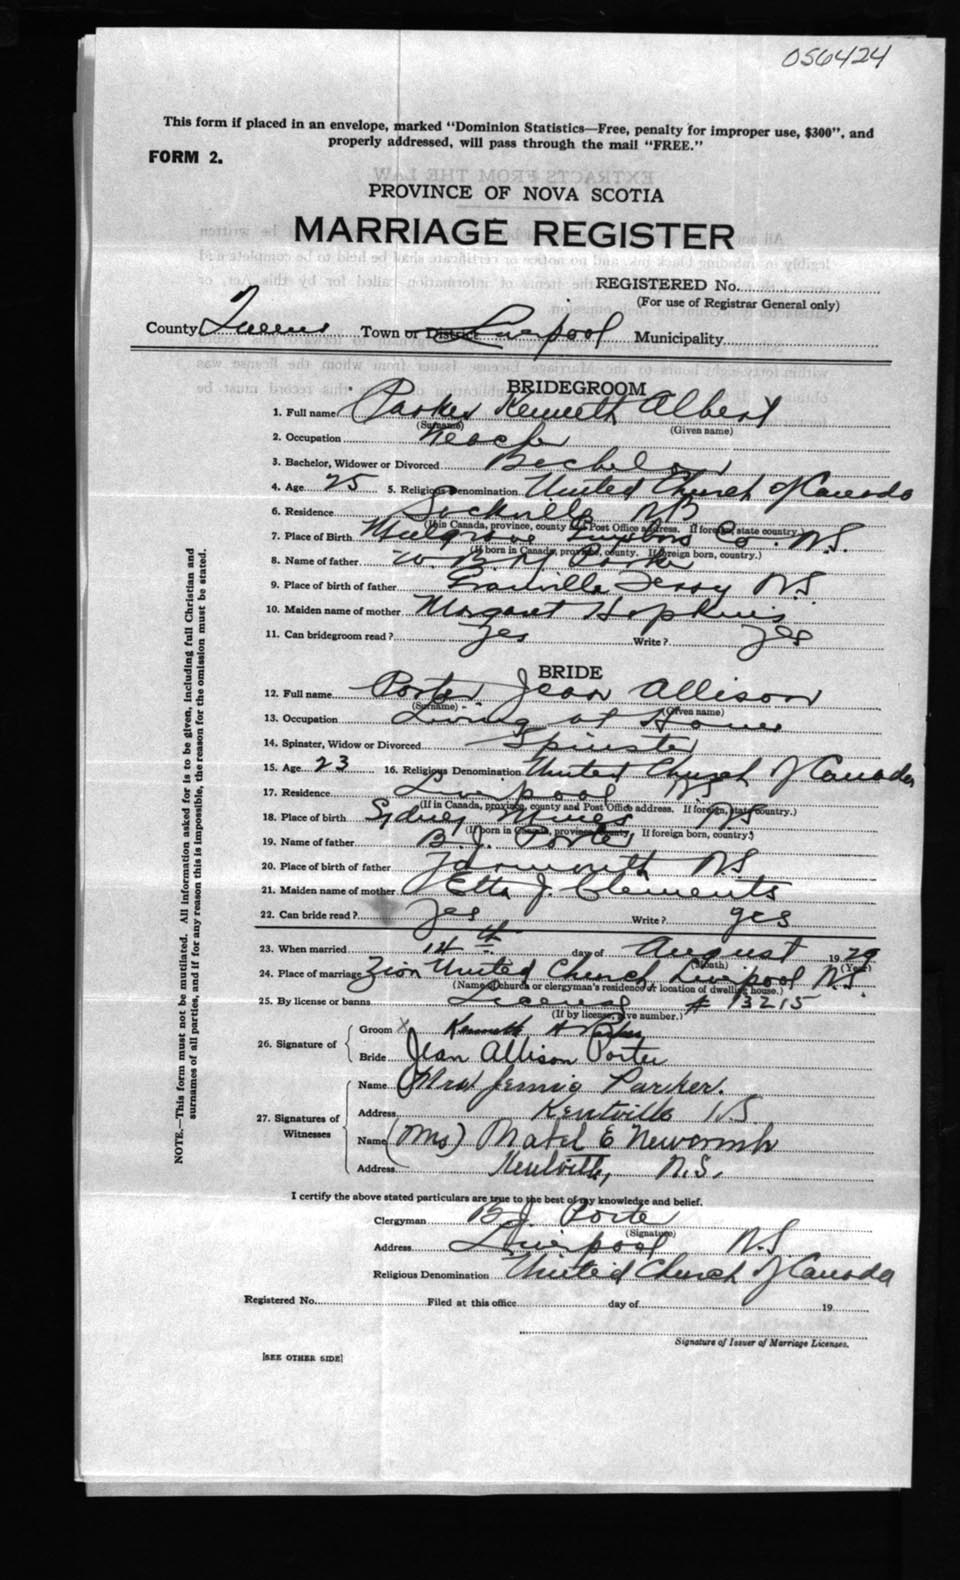 056424
This form if placed in an envelope, marked "Dominion Statistics—Free, penalty for improper use, $300", and
properly addressed, will pass through the mail "FREE."
FORM 2.
PROVINCE OF NOVA SCOTIA
MARRIAGE REGISTER
REGISTERED No.
(For use of Registrar General only)
County Queens Town or District Liverpool Municipality
BRIDEGROOM
1. Full name Parker Kenneth Albert
(Surname) (Given name)
2. Occupation Teacher
3. Bachelor, Widower or Divorced Bachelor
4. Age 25 5. Religious Denomination United Church of Canada
6. Residence Sackville NB
(If in Canada, province, county and Post Office address. If foreign, state country.)
7. Place of Birth Mulgrave Guysboro Co. N.S.
(If born in Canada, province, county. If foreign born, country.)
8. Name of father W. B. M. Parker
9. Place of birth of father Granville Ferry N.S.
10. Maiden name of mother Margaret Hopkins
11. Can bridegroom read? Yes Write? Yes
BRIDE
12. Full name Porter Jean Allison
(Surname) (Given name)
13. Occupation Living at Home
14. Spinster, Widow or Divorced Spinster
15. Age 23 16. Religious Denomination United Church of Canada
17. Residence Liverpool NS
(If in Canada, province, county and Post Office address. If foreign, state country.)
18. Place of birth Sydney Mines N.S
(If born in Canada, province county. If foreign born, country.)
19. Name of father B. J. Porter
20. Place of birth of father Yarmouth NS
21. Maiden name of mother Etta J. Clements
22. Can bride read? Yes Write? yes
23. When married 14th day of August 1929
(Month) (Year)
24. Place of marriage Zion United Church Liverpool N.S.
(Name of church or clergyman's residence or location of dwelling house.)
25. By license or banns License # 13215
(If by license, give number.)
26. Signature of Groom X Kenneth A Parker
Bride Jean Allison Porter
27. Signatures of Witnesses Name Mrs Jennie Parker.
Address Kentville NS
Name (Mrs) Mabel E
Address Kentville, N.S.
I certify the above stated particulars are true to the best of my knowledge and belief.
Clergyman B. J. Porter
(Signature)
Address Liverpool N.S.
Religious Denomination United Church of Canada
Registered No. Filed at this office day of 19
Signature of Issuer of Marriage Licenses.
[SEE OTHER SIDE]
NOTE.—This form must not be mutilated. All information asked for is to be given, including full Christian and
surnames of all parties, and if for any reason this is impossible, the reason for the omission must be stated.